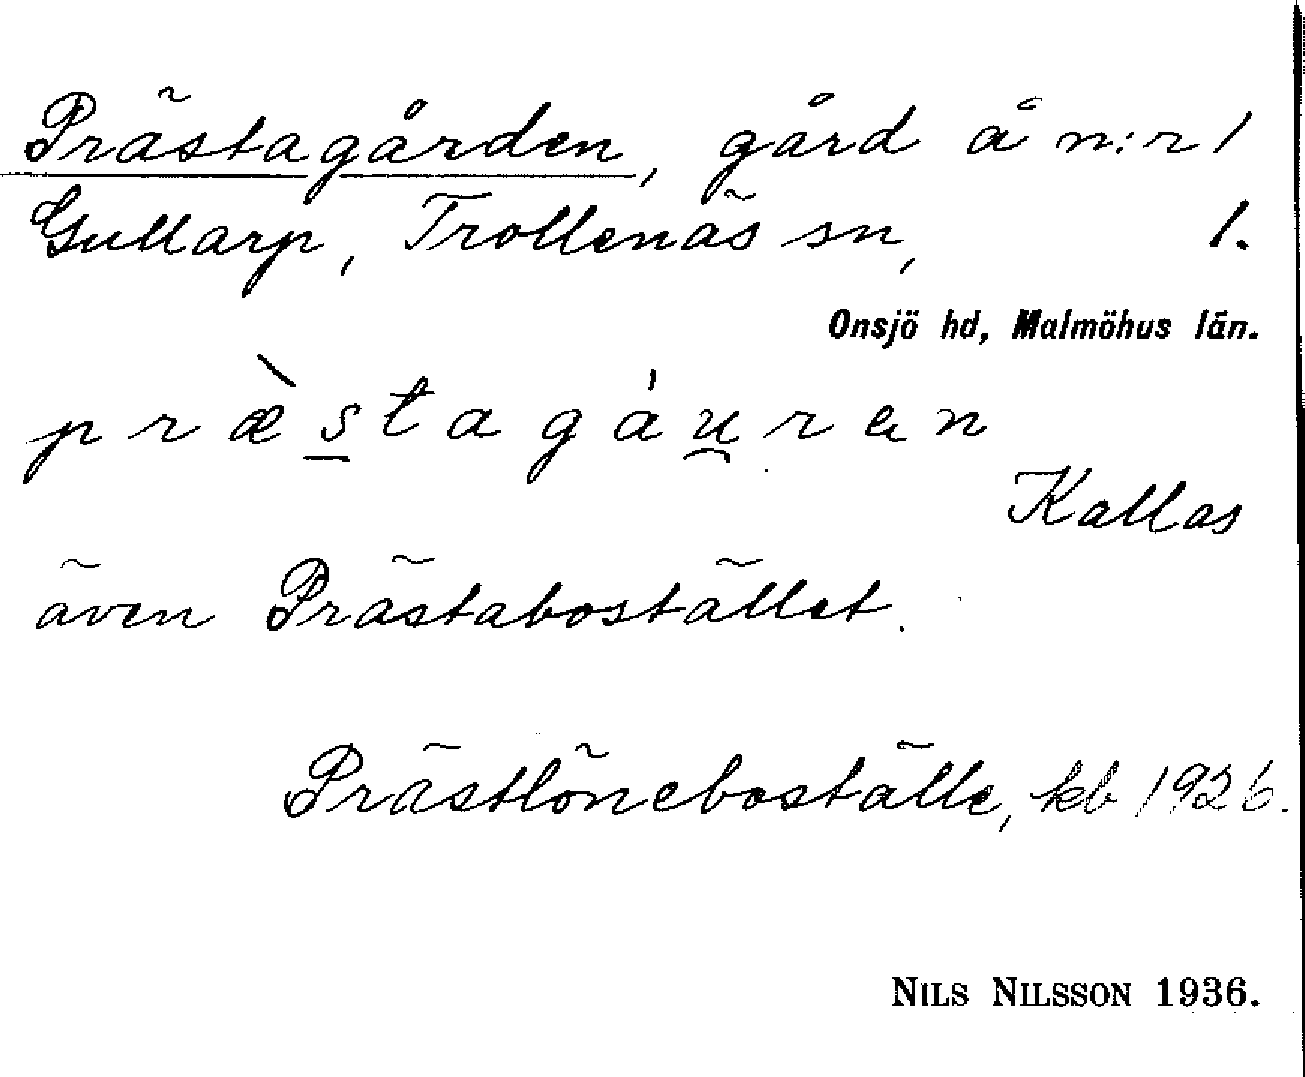 Prästagården, gård å n:r 1
Gullarp, Trollenäs sn, 1.
Onsjö hd, Malmöhus län.
præ̀s̲tagáu̯ren
Kallas
även Prästabostället.
Prästlöneboställe, kb 1926.
NILS NILSSON 1936.